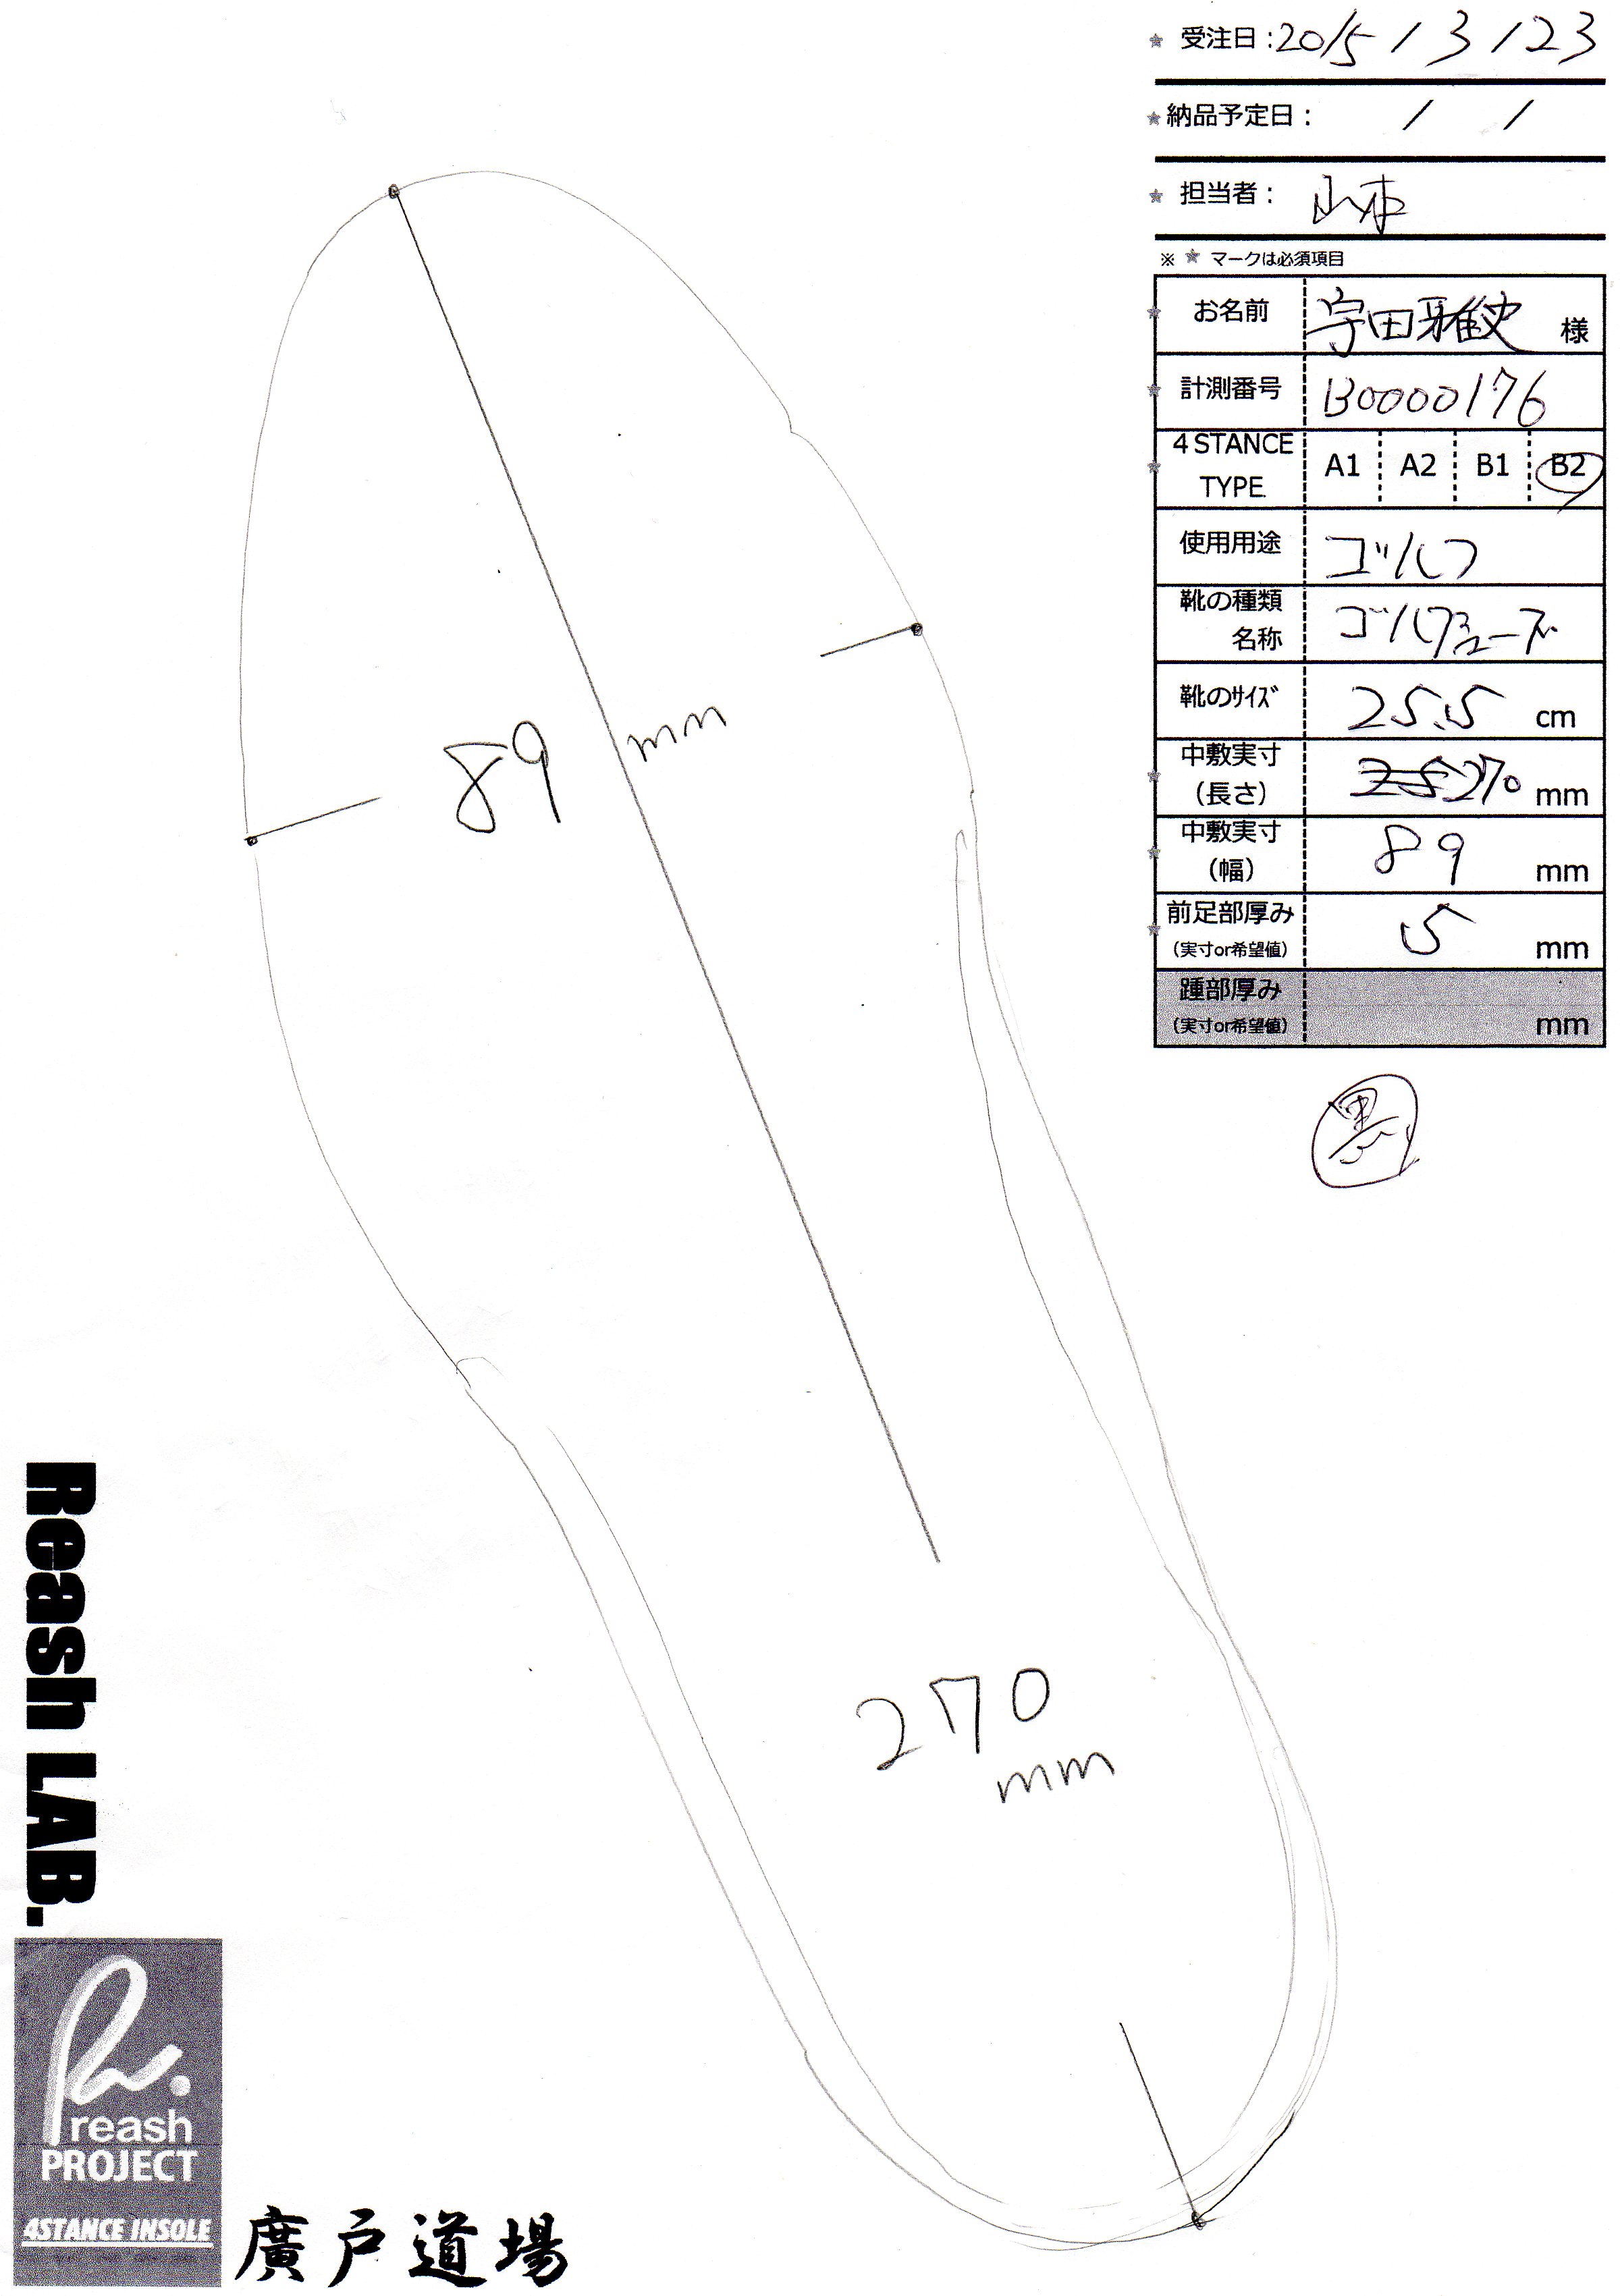 ★ 受注日:2015/3/23
★ 納品予定日: / /
★ 担当者: 山本
※ ★ マークは必須項目
★ お名前 宇田雅史 様
★ 計測番号 B0000176
★ 4STANCE TYPE A1 A2 B1 B2
使用用途 ゴルフ
靴の種類 名称 ゴルフシューズ
靴のサイズ 25.5 cm
★ 中敷実寸 (長さ) 270 mm
★ 中敷実寸 (幅) 89 mm
★ 前足部厚み (実寸or希望値) 5 mm
踵部厚み (実寸or希望値) mm
89 mm
270
mm
Reash LAB.
reash
PROJECT
4STANCE INSOLE
廣戸道場